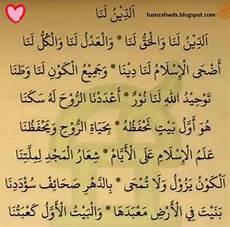 hamzahwds.blogspot.com
اَلدِّيْنُ لَنَا
اَلدِّيْنُ لَنَا وَالْحَقُّ لَنَا * وَالْعَدْلُ لَنَا وَالْكُلُّ لَنَا
أَضْحَى الْإِسْلَامُ لَنَا دِيْنًا * وَجَمِيْعُ الْكَوْنِ لَنَا وَطَنًا
تَوْحِيْدُ اللهِ لَنَا نُوْرٌ * أَعْدَدْنَا الرُّوْحَ لَهُ سَكَنَا
هُوَ أَوَّلُ بَيْتٍ نَحْفَظُهُ * بِحَيَاةِ الرُّوْحِ وَيَحْفَظُنَا
عَلَمُ الْإِسْلَامِ عَلَى الْأَيَّامِ * شِعَارُ الْمَجْدِ لِمِلَّتِنَا
اَلْكَوْنُ يَزُوْلُ وَلَا تُمْحَى * بِالدَّهْرِ صَحَائِفُ سُؤْدَدِنَا
بُنِيَتْ فِي الْأَرْضِ مَعْبَدَهَا * وَالْبَيْتُ الْأَوَّلُ كَعْبَتُنَا